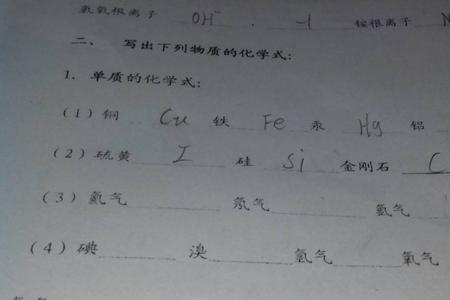 氢氧根离子 OH⁻ . -1 铵根离子 N
二、 写出下列物质的化学式:
1. 单质的化学式:
(1) 铜 Cu 铁 Fe 汞 Hg 铝
(2) 硫黄 I 硅 Si 金刚石 C
(3) 氦气 氖气 氩气
(4) 碘 溴 氢气 氧气